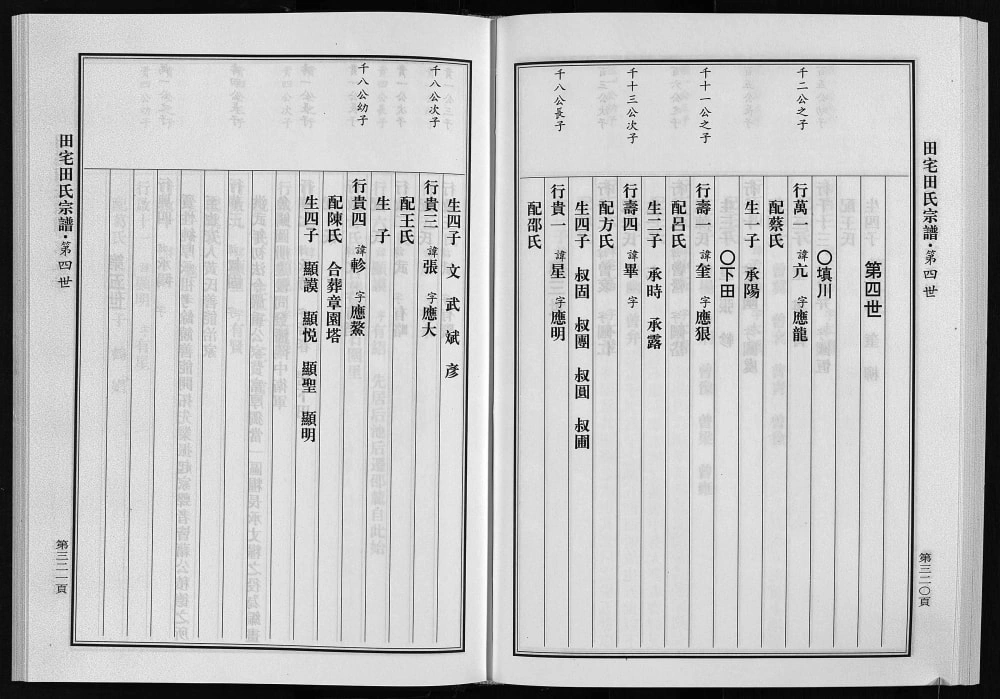 田宅田氏宗譜·第四世
第三二〇頁
第四世
〇填川
千二公之子
行萬一 諱亢 字應龍
配蔡氏
生一子 承陽
〇下田
千十一公之子
行壽一 諱奎 字應狠
配呂氏
生二子 承時 承露
千十三公次子
行壽四 諱畢 字
配方氏
生四子 叔固 叔團 叔圓 叔圃
千八公長子
行貴一 諱星 字應明
配邵氏
生四子 文 武 斌 彦
千八公次子
行貴三 諱張 字應大
配王氏
生 子
千八公幼子
行貴四 諱軫 字應鰲
配陳氏 合葬章園塔
生四子 顯謨 顯悦 顯聖 顯明
田宅田氏宗譜·第四世
第三二一頁